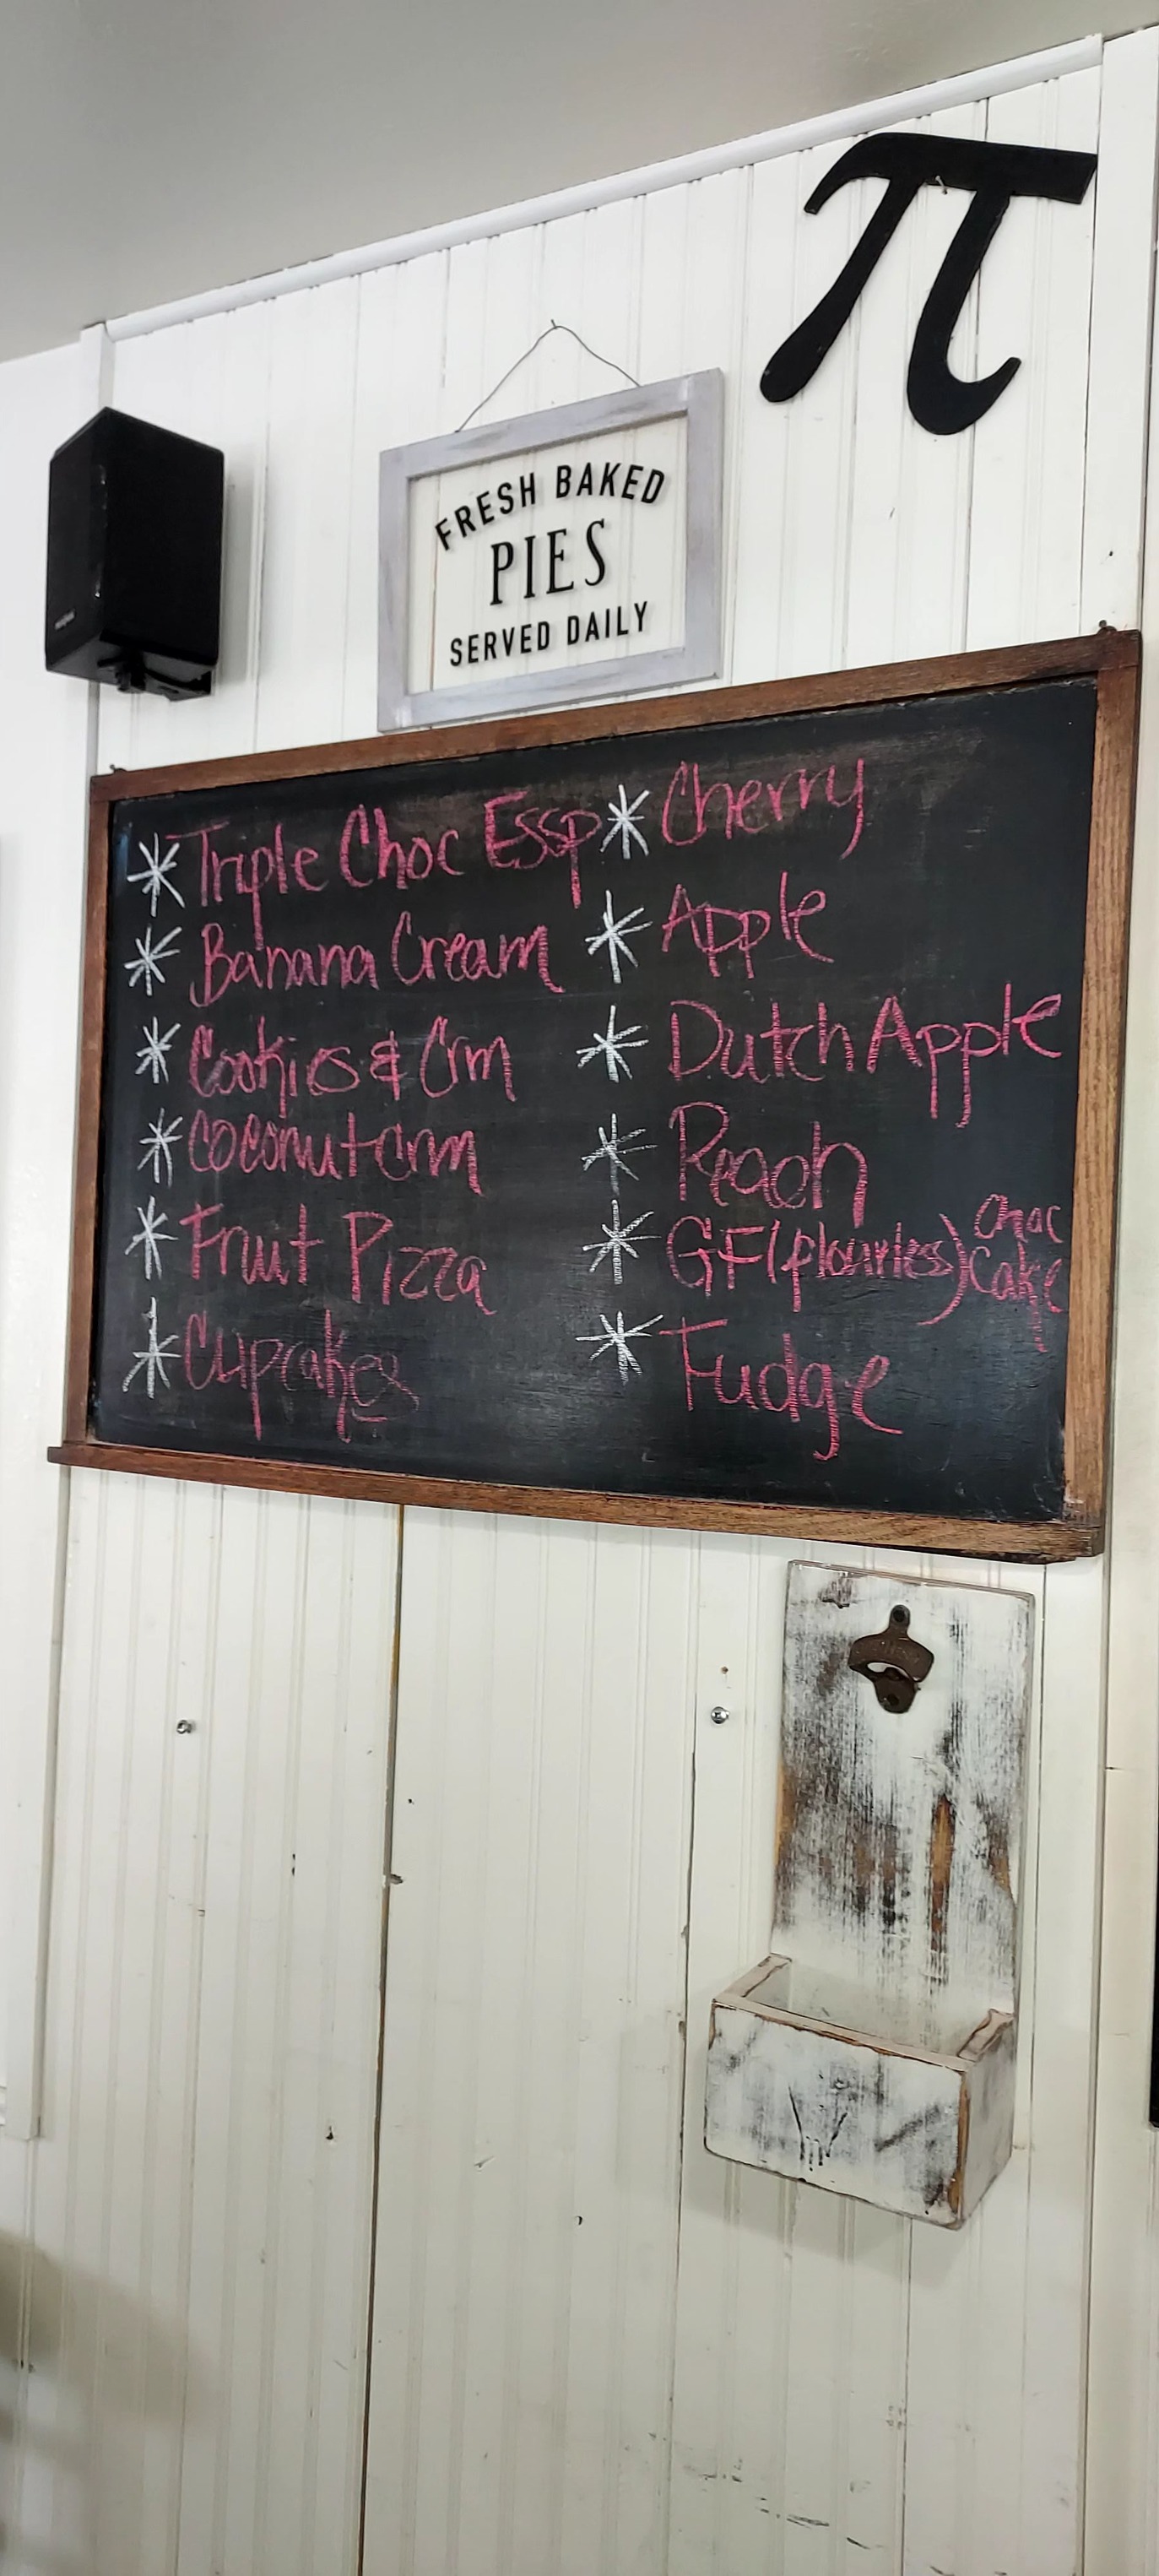 π
FRESH BAKED
PIES
SERVED DAILY
* Triple Choc Essp
* Banana Cream
* Cookies & Crm
* Coconut Crm
* Fruit Pizza
* Cupcakes
* Cherry
* Apple
* Dutch Apple
* Peach
* GF (flourless) Choc
Cake
* Fudge